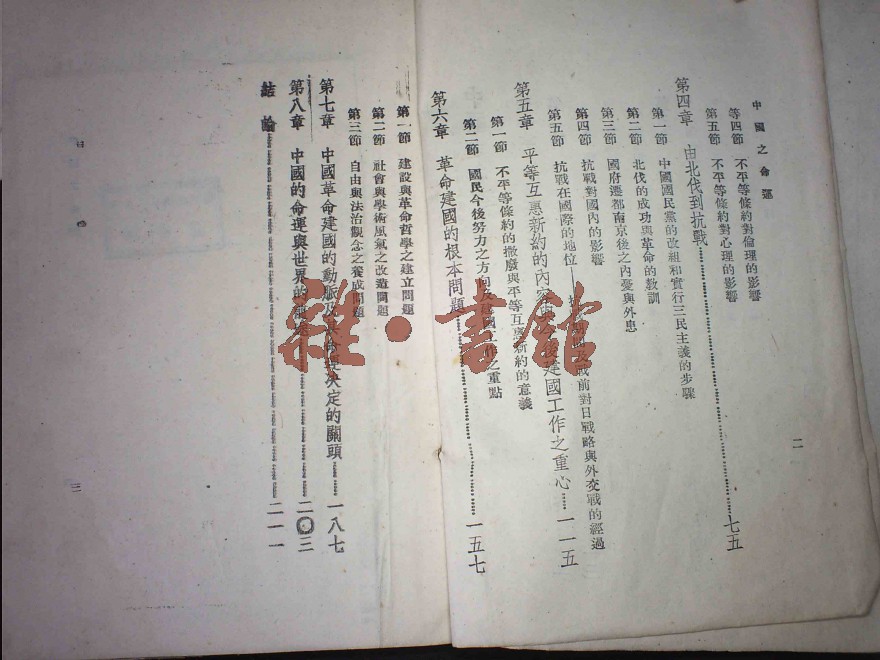 中國之命運
二
等四節 不平等條約對倫理的影響
第五節 不平等條約對心理的影響
第四章 由北伐到抗戰……七五
第一節 中國國民黨的改組和實行三民主義的步驟
第二節 北伐的成功與革命的教訓
第三節 國府遷都南京後之內憂與外患
第四節 抗戰對國內的影響
第五節 抗戰在國際的地位——及戰前對日戰略與外交戰的經過
第五章 平等互惠新約的內容與今後建國工作之重心……一一五
第一節 不平等條約的撤廢與平等互惠新約的意義
第二節 國民今後努力之方向及建國工作之重點
第六章 革命建國的根本問題……一五七
第一節 建設與革命哲學之建立問題
第二節 社會與學術風氣之改造問題
第三節 自由與法治觀念之養成問題
第七章 中國革命建國的動脈及其命運決定的關頭……一八七
第八章 中國的命運與世界的前途……二〇三
結論……二一一
目
三
雜·書館